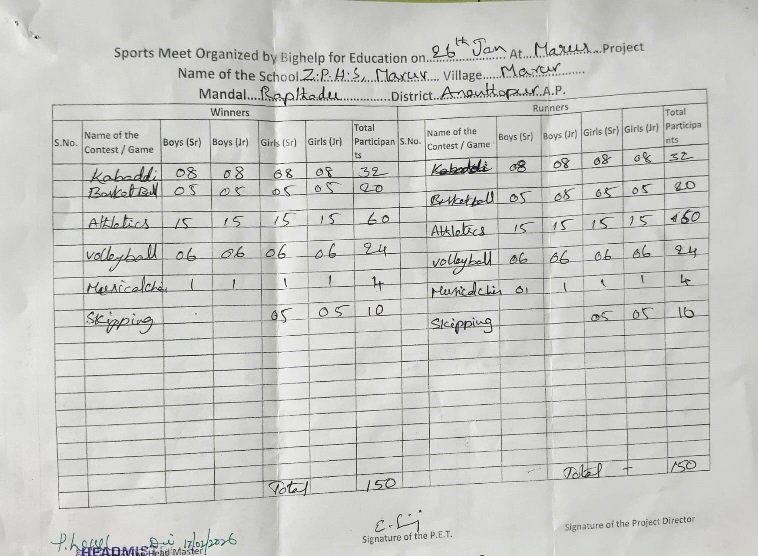 Sports Meet Organized by Bighelp for Education on...26th Jan... At...Marur...Project
Name of the School Z.P.H.S, Marur.... Village.....Marur..........
Mandal....Rapthadu..............District..Ananthapur. A.P.
Winners Runners
S.No. Name of the Contest / Game Boys (Sr) Boys (Jr) Girls (Sr) Girls (Jr) Total Participants S.No. Name of the Contest / Game Boys (Sr) Boys (Jr) Girls (Sr) Girls (Jr) Total Participants
Kabaddi 08 08 08 08 32 Kabaddi 08 08 08 08 32
BasketBall 05 05 05 05 20 Basketball 05 05 05 05 20
Athletics 15 15 15 15 60 Athletics 15 15 15 15 60
volleyball 06 06 06 06 24 volleyball 06 06 06 06 24
Musicalchir 1 1 1 1 4 Musicalchir 01 1 1 1 4
Skipping 05 05 10 Skipping 05 05 10
Total 150 Total - 150
HEADMIS Head Master
Signature of the P.E.T.
Signature of the Project Director